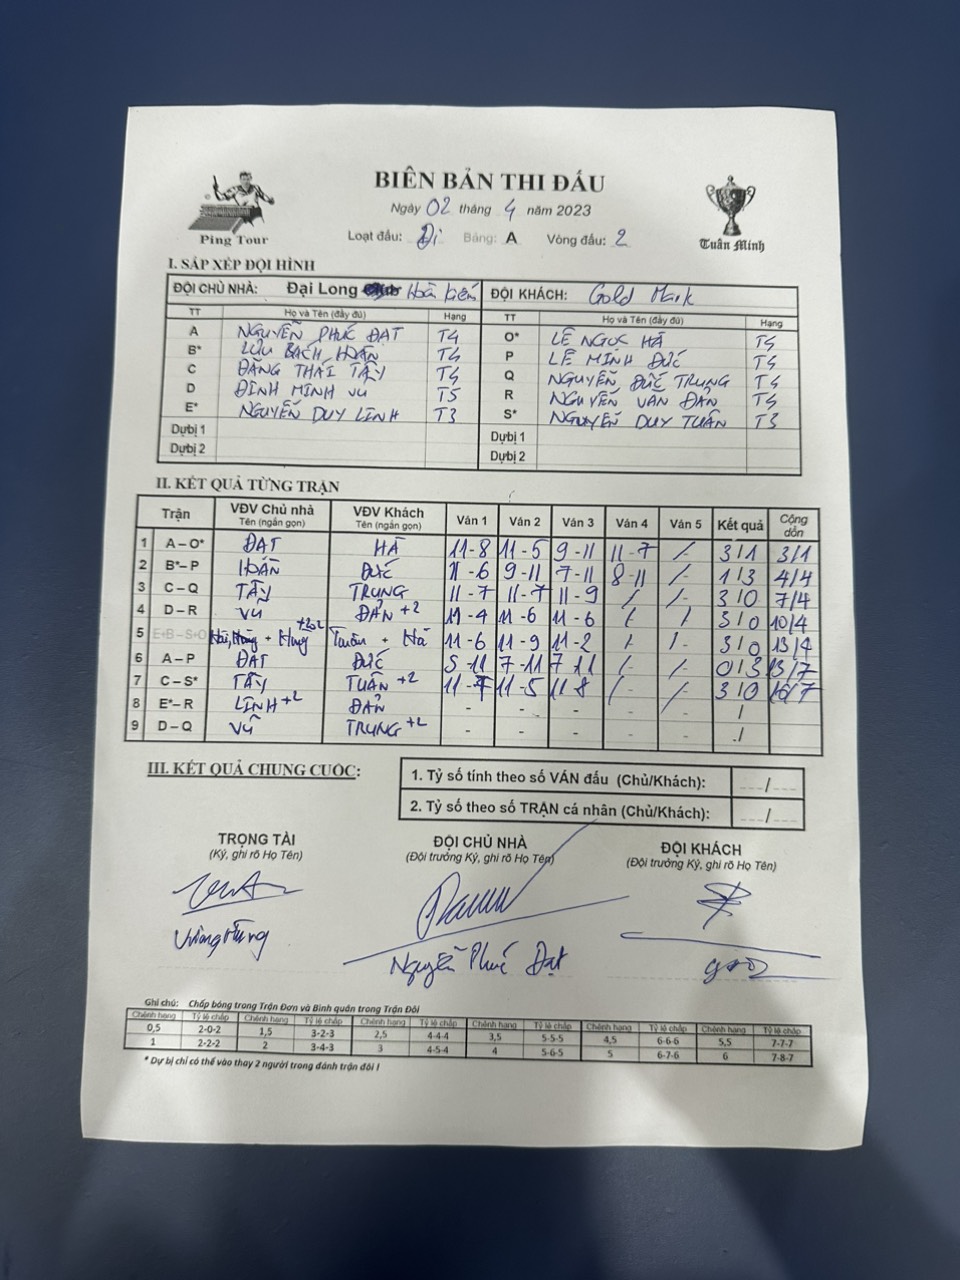 BIÊN BẢN THI ĐẤU
Ngày 02 tháng 4 năm 2023
Ping Tour
Loạt đấu: Đi Bảng: A Vòng đấu: 2
Tuấn Minh
I. SẮP XẾP ĐỘI HÌNH
ĐỘI CHỦ NHÀ: Đại Long Hoàn Kiếm ĐỘI KHÁCH: Gold Mark
TT Họ và Tên (đầy đủ) Hạng TT Họ và Tên (đầy đủ) Hạng
A NGUYỄN PHÚC ĐẠT T4 O* LÊ NGỌC HÀ T4
B* LƯU BÁCH HOÀN T4 P LÊ MINH ĐỨC T4
C ĐẶNG THÁI TÂY T4 Q NGUYỄN ĐỨC TRUNG T4
D ĐINH MINH VŨ T5 R NGUYỄN VĂN ĐẢN T4
E* NGUYỄN DUY LINH T3 S* NGUYỄN DUY TUẤN T3
Dựbị 1 Dựbị 1
Dựbị 2 Dựbị 2
II. KẾT QUẢ TỪNG TRẬN
Trận VĐV Chủ nhà Tên (ngắn gọn) VĐV Khách Tên (ngắn gọn) Ván 1 Ván 2 Ván 3 Ván 4 Ván 5 Kết quả Cộng dồn
1 A – O* ĐẠT HÀ 11-8 11-5 9-11 11-7 / 3/1 3/1
2 B*– P HOÀN ĐỨC 11-6 9-11 7-11 8-11 / 1/3 4/4
3 C – Q TÂY TRUNG 11-7 11-7 11-9 / / 3/0 7/4
4 D – R VŨ ĐẢN +2 11-4 11-6 11-6 / / 3/0 10/4
5 E+B – S+O + Hưng Tuấn + Hà 11-6 11-9 11-2 / / 3/0 13/4
6 A – P ĐẠT ĐỨC 5-11 7-11 7-11 / / 0/3 13/7
7 C – S* TÂY TUẤN +2 11-7 11-5 11-8 / / 3/0 16/7
8 E*– R LINH +2 ĐẢN - - - - - /
9 D – Q VŨ TRUNG +2 - - - - - /
III. KẾT QUẢ CHUNG CUỘC:
1. Tỷ số tính theo số VÁN đấu (Chủ/Khách): ---/---
2. Tỷ số theo số TRẬN cá nhân (Chủ/Khách): ---/---
TRỌNG TÀI ĐỘI CHỦ NHÀ ĐỘI KHÁCH
(Ký, ghi rõ Họ Tên) (Đội trưởng Ký, ghi rõ Họ Tên) (Đội trưởng Ký, ghi rõ Họ Tên)
Nguyễn Phúc Đạt
Ghi chú: Chấp bóng trong Trận Đơn và Bình quân trong Trận Đôi
Chênh hạng Tỷ lệ chấp Chênh hạng Tỷ lệ chấp Chênh hạng Tỷ lệ chấp Chênh hạng Tỷ lệ chấp Chênh hạng Tỷ lệ chấp Chênh hạng Tỷ lệ chấp
0,5 2-0-2 1,5 3-2-3 2,5 4-4-4 3,5 5-5-5 4,5 6-6-6 5,5 7-7-7
1 2-2-2 2 3-4-3 3 4-5-4 4 5-6-5 5 6-7-6 6 7-8-7
* Dự bị chỉ có thể vào thay 2 người trong đánh trận đôi !